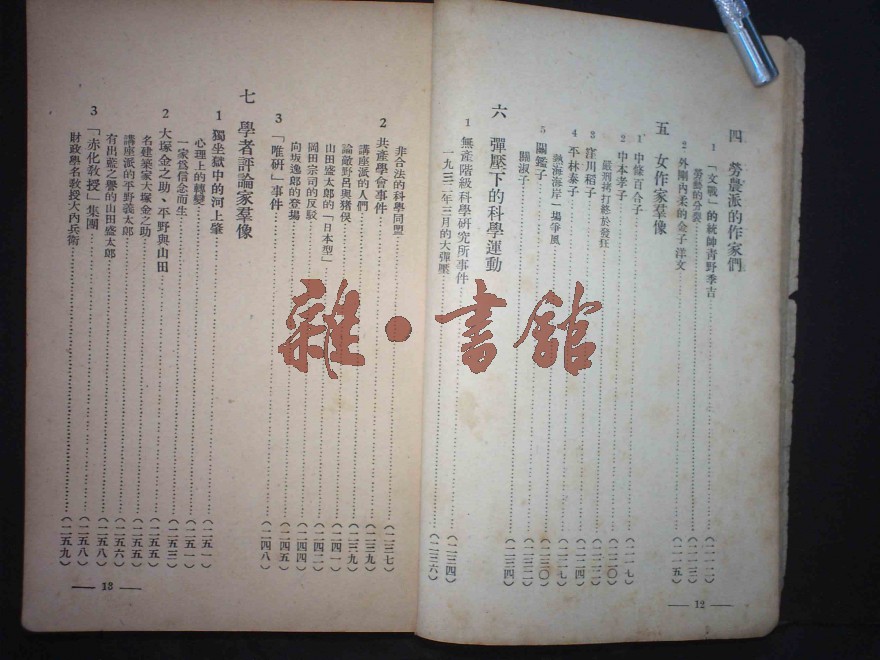 四 勞農派的作家們
1 「文戰」的統帥青野季吉……(二一二)
勞藝的分裂……(二一三)
2 外剛內柔的金子洋文……(二一五)
五 女作家羣像
1 中條百合子……(二一七)
2 中本孝子
嚴刑拷打終於發狂……(二二〇)
3 窪川稻子……(二二二)
4 平林泰子……(二二四)
熱海海岸一場爭風……(二二七)
5 關鑑子……(二三〇)
關淑子……(二三二)
六 彈壓下的科學運動……(二三四)
1 無產階級科學研究所事件……(二三四)
一九三二年三月的大彈壓……(二三六)
— 12 —
非合法的科學同盟……(二三七)
2 共產學會事件
講座派的人們……(二三九)
論敵野呂與猪俣……(二三九)
山田盛太郎的「日本型」……(二四一)
岡田宗司的反駁……(二四二)
向坂逸郎的登場……(二四四)
3 「唯研」事件……(二四五)
七 學者評論家羣像……(二四八)
1 獨坐獄中的河上肇
心理上的轉變……(二五一)
一家爲信念而生……(二五一)
2 大塚金之助、平野與山田……(二五三)
名建築家大塚金之助……(二五五)
講座派的平野義太郎……(二五五)
有出藍之譽的山田盛太郎……(二五六)
3 「赤化教授」集團……(二五八)
財政學名教授大內兵衛……(二五九)
— 13 —
雜·書舘